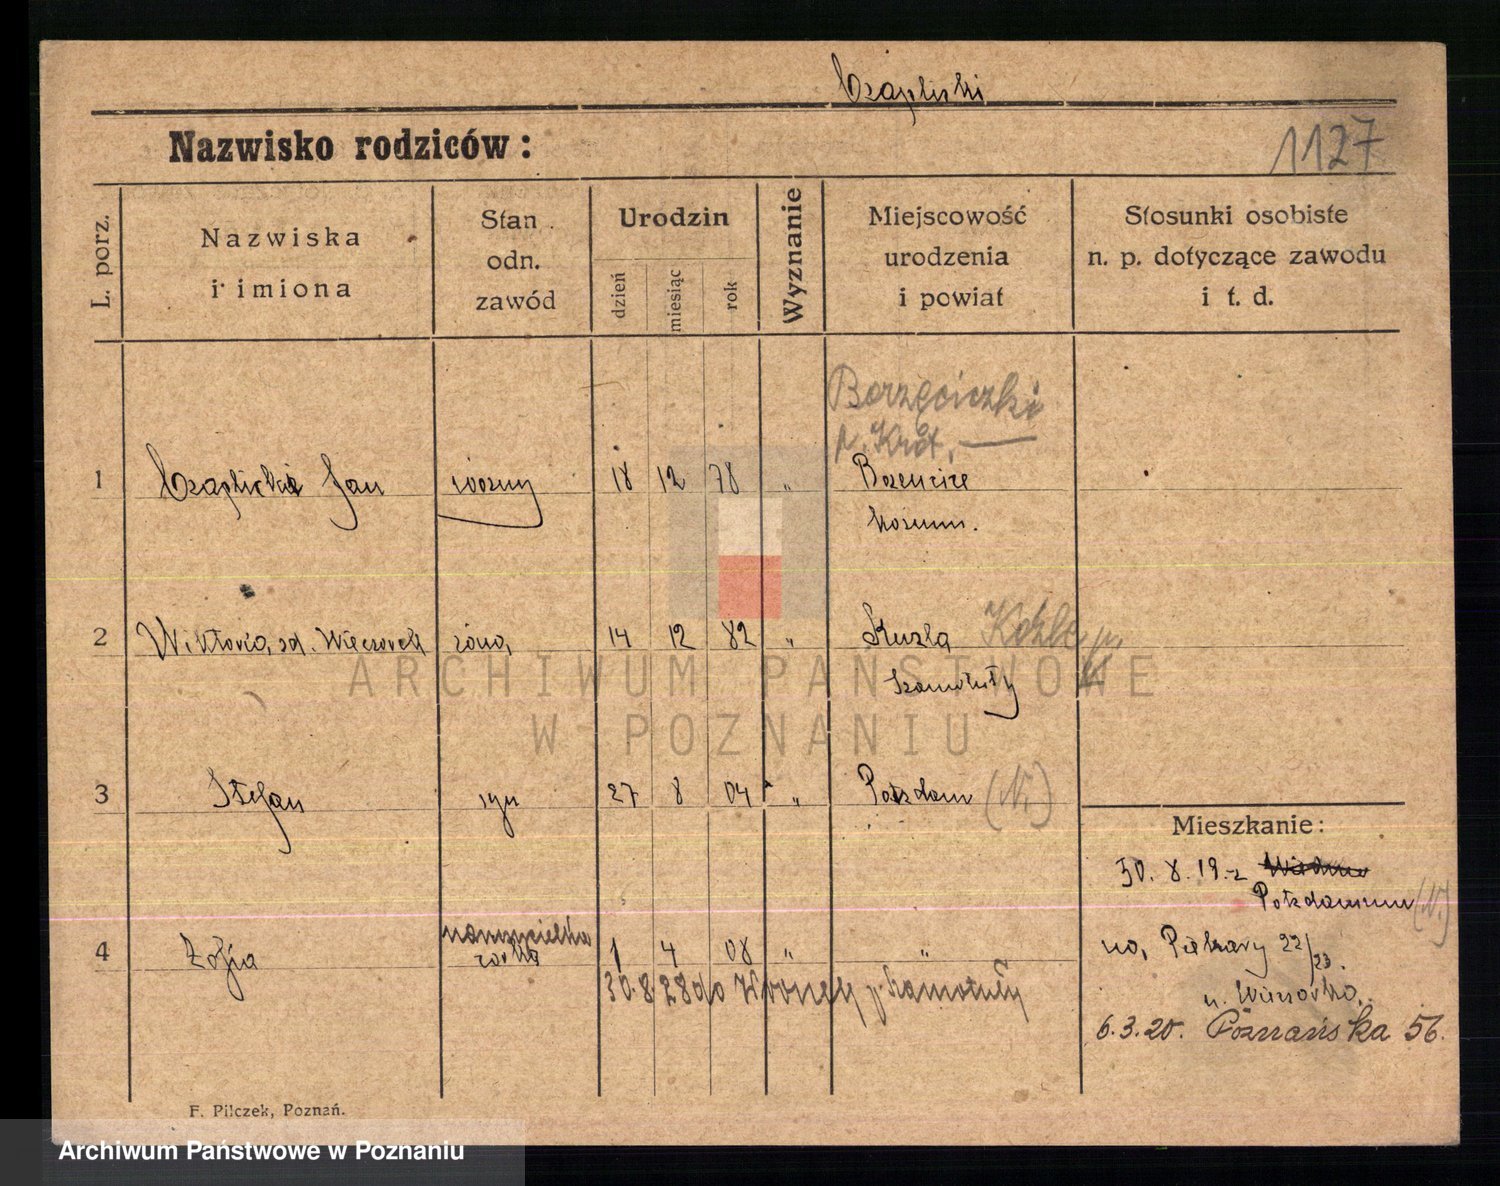 Czaplicki
Nazwisko rodziców:
1127
L. porz.
Nazwiska
i imiona
Stan
odn.
zawód
Urodzin
dzień
miesiąc
rok
Wyznanie
Miejscowość
urodzenia
i powiat
Stosunki osobiste
n. p. dotyczące zawodu
i t. d.
Borzęciczki
p. Krot.
1 Czaplicki Jan woźny 18 12 78 "
2 Wiktoria, żd. Wieczorek żona, 14 12 82 " Kozle p.
Szamotuły
3 Stefan syn 27 8 04 " Potsdam (N.)
Mieszkanie:
30. 8. 19. z
Potsdammu (N.)
4 Zofia nauczycielka córka 1 4 08 " "
30.8.28 do Wronek p. Szamotuły
na, Piekary 22/23.
u. Wieczorka.
6.3.20. Poznańska 56.
F. Pilczek, Poznań.
ARCHIWUM PAŃSTWOWE
W POZNANIU
Archiwum Państwowe w Poznaniu